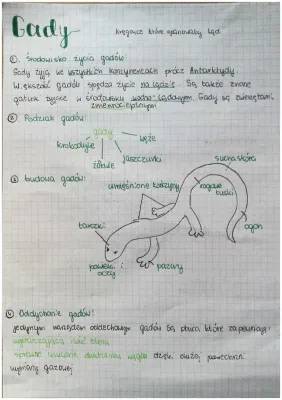 Gady
Kręgowce które opanowały ląd
① Środowisko życia gadów:
Gady żyją we wszystkich kontynentach prócz Antarktydy
Większość gadów spędza życie na lądzie. Są także znane
gatunki żyjące w środowisku wodno-lądowym. Gady są zwierzętami
zmiennocieplnymi
② Podział gadów:
gady
krokodyle
węże
żółwie
jaszczurki
③ budowa gadów:
umięśnione kończyny
sucha skóra
rogowe łuski
tarczki
ogon
powieki
pazury
④ Oddychanie gadów:
jedynym narządem oddechowym gadów są płuca które zapewniają:
wystarczającą ilość tlenu
sprawne usuwanie dwutlenku węgla dzięki dużej powierzchni
wymiany gazowej